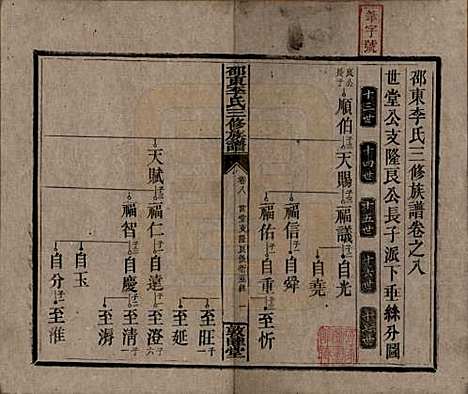 筆字號
邵東李氏三修族譜卷之八
世堂公支隆良公長子派下垂絲分圖
十三世 十四世 十五世 十六世
良公長子 順伯 天賜 福議 自光
自堯
福信 自舜
福佑 自重 至忻
邵東李氏三修族譜
卷八
敦睦堂
至旺
至延
天賦 福仁 自達 至澄
福智 自慶 至清
至濤
自玉
自分 至淮